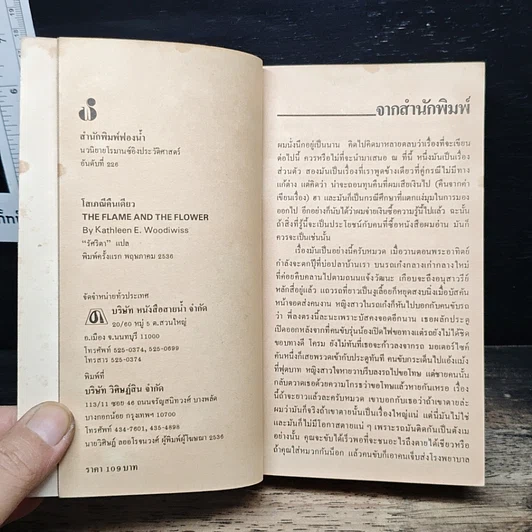 สำนักพิมพ์ฟองน้ำ
นวนิยายโรมานซ์อิงประวัติศาสตร์
อันดับที่ 226
โสเภณีคืนเดียว
THE FLAME AND THE FLOWER
By Kathleen E. Woodiwiss
"รัศริดา" แปล
พิมพ์ครั้งแรก พฤษภาคม 2536
จัดจำหน่ายทั่วประเทศ
บริษัท หนังสือสายน้ำ จำกัด
20/60 หมู่ 5 ต.สวนใหญ่
อ.เมือง จ.นนทบุรี 11000
โทรศัพท์ 525-0374, 525-0699
โทรสาร 525-0374
พิมพ์ที่
บริษัท วิศิษฎ์สิน จำกัด
113/11 ซอย 46 ถนนจรัญสนิทวงศ์ บางพลัด
บางกอกน้อย กรุงเทพฯ 10700
โทรศัพท์ 434-7601, 435-4898
นายวิศิษฎ์ ลออโรจนวงศ์ ผู้พิมพ์ผู้โฆษณา 2536
ราคา 109 บาท
จากสำนักพิมพ์
ผมนั่งนึกอยู่เป็นนาน คิดไปคิดมาหลายตลบว่าเรื่องที่จะเขียน
ต่อไปนี้ ควรหรือไม่ที่จะนำมาเสนอ ณ ที่นี้ หนึ่งมันเป็นเรื่อง
ส่วนตัว สองมันเป็นเรื่องคดีความที่จะว่าไปแล้วคู่กรณีไม่มีทาง
แก้ต่าง แต่คิดว่า น่าจะถอนทุนคืนที่ผมเสียเงินไป (คืนจากค่า
เขียนเรื่อง) ฮา และมันเป็นเรื่องกรณีศึกษาที่แตกแง่มุมในการมอง
ออกไป อีกอย่างก็นับได้ว่าผมจ่ายเงินซื้อความรู้นี้ไปแล้ว ฉะนั้น
ถ้าสิ่งที่รู้นี้จะเป็นประโยชน์กับคนที่ซื้อหนังสือผมอ่าน มันก็
ควรจะเป็นเช่นนั้น
เรื่องมันเป็นอย่างนี้ครับหมวด เมื่อวานตอนพระอาทิตย์
กำลังจะตกปีที่บ่อปลาบ้านเรา บนรถเก๋งกลางเก่ากลางใหม่
ที่ค่อยคืบคลานไปตามถนนแจ้งวัฒนะ เกือบจะถึงอนุสาวรีย์
หลักสี่อยู่แล้ว แถวรถที่ยาวเป็นงูเลื้อยก็หยุดสงบนิ่งเมื่อรถบัสคัน
หน้าจอดส่งคนงาน หญิงสาวในรถเก๋งก็หันไปบอกกับคนขับรถ
ว่า ที่ลงตรงนี้นะเพราะรถบัสคงจอดอีกนาน เธอผลักประตู
เปิดออกหลังจากที่คนขับรุ่นน้องเปิดไฟขอทางแต่รถยังไม่ได้ชิด
ขอบทางดี โครม ยังไม่ทันที่เธอจะก้าวลงจากรถ มอเตอร์ไซค์
คันหนึ่งก็เสยพรวดเข้ากับประตูทันที คนขับกระเด็นไปแอ้งแม้ง
ที่ฟุตบาท หญิงสาวใจหายวาบรีบลงรถไปขอโทษ แต่ชายคนนั้น
กลับตวาดเธอด้วยความโกรธว่าขอโทษแล้วหายกันเหรอ เรื่อง
นี้ถ้าจะยาวแล้วละครับหมวด เขาบอกกับเธอว่าถ้าเขาตายล่ะ
ผมว่ามันก็จริงถ้าเขาตายนั้นเป็นเรื่องใหญ่แน่ แต่นี่มันไม่ใช่
และมันก็ไม่มีโอกาสตายแน่ ๆ เพราะรถมันติดกันเป็นตังเม
อย่างนั้น คุณจะขับได้เร็วพอที่จะชนอะไรถึงตายได้เชียวหรือ
ถ้าคุณใส่หมวกกันน็อก แล้วคนขับก็เอาคนเจ็บส่งโรงพยาบาล